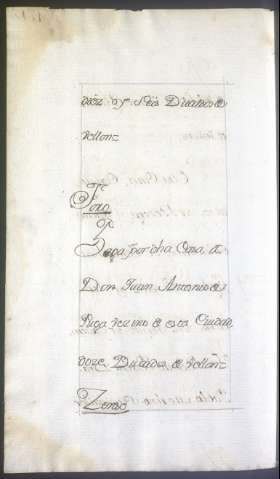 diez y Seis Ducados de
Vellon
Foro
Paga por dha Casa, a
Don Juan Antonio de
Puga vezino de esta Ciudad
doze Ducados de Vellon
Zenso